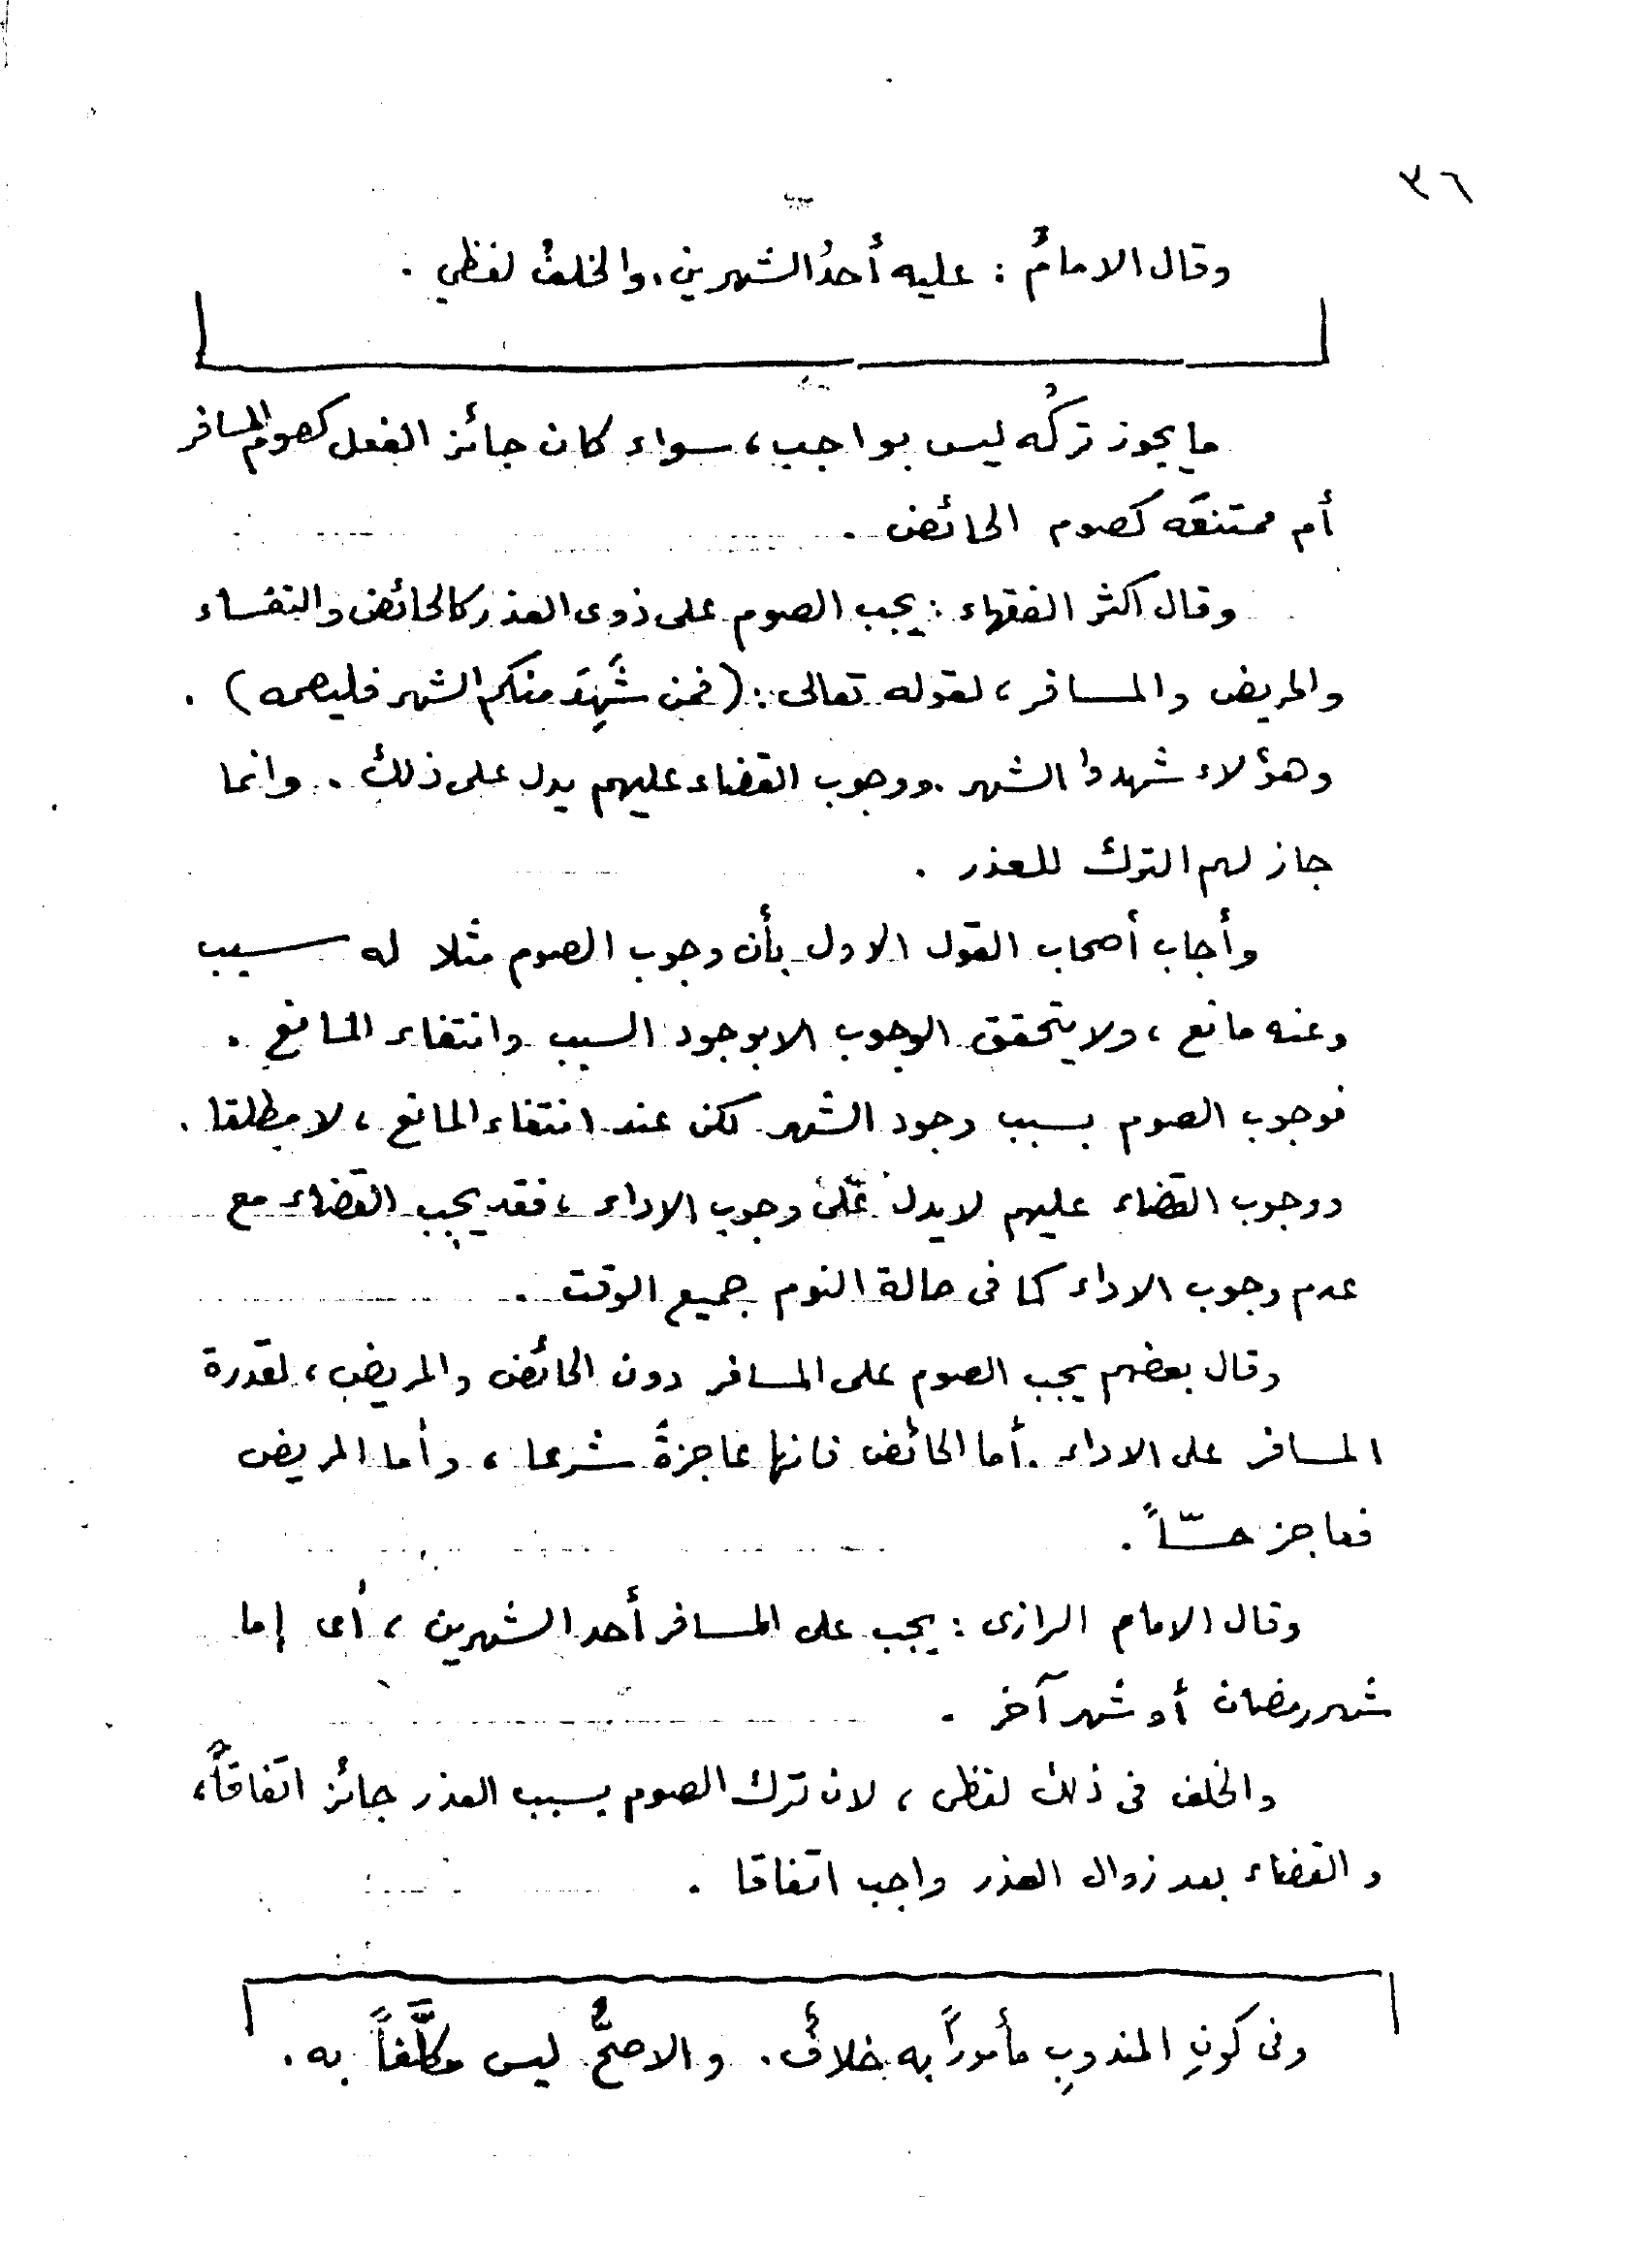 ٣٦
وقال الامامُ : عليه أحدُ الشهرين، والخلفُ لفظي .
ما يجوز تركُه ليس بواجب، سواء كان جائز الفعل كصوم المسافر
أم ممتنعَه كصوم الحائض .
وقال اكثر الفقهاء : يجب الصوم على ذوى العذر كالحائض والنفساء
والمريض والمسافر، لقوله تعالى : (فمن شَهِدَ منكم الشهر فليصمه) .
وهؤلاء شهدوا الشهر . ووجوب القضاء عليهم يدل على ذلك . وانما
جاز لهم الترك للعذر .
وأجاب أصحاب القول الاول بأن وجوب الصوم مثلا له سبب
وعنه مانع، ولا يتحقق الوجوب الا بوجود السبب وانتفاء المانع .
فوجوب الصوم بسبب وجود الشهر لكن عند انتفاء المانع، لا مطلقا .
ووجوب القضاء عليهم لا يدل على وجوب الاداء، فقد يجب القضاء مع
عدم وجوب الاداء كما فى حالة النوم جميع الوقت .
وقال بعضهم يجب الصوم على المسافر دون الحائض والمريض، لقدرة
المسافر على الاداء . أما الحائض فانها عاجزةً شرعا، وأما المريض
فعاجز حسّاً .
وقال الامام الرازى : يجب على المسافر أحد الشهرين، أى إما
شهر رمضان أو شهر آخر .
والخلف فى ذلك لفظى، لان ترك الصوم بسبب العذر جائز اتفاقاً،
والقضاء بعد زوال العذر واجب اتفاقا .
وفى كونِ المندوبِ مأموراً به خلافٌ . والاصحُّ ليس مكلَّفاً به .